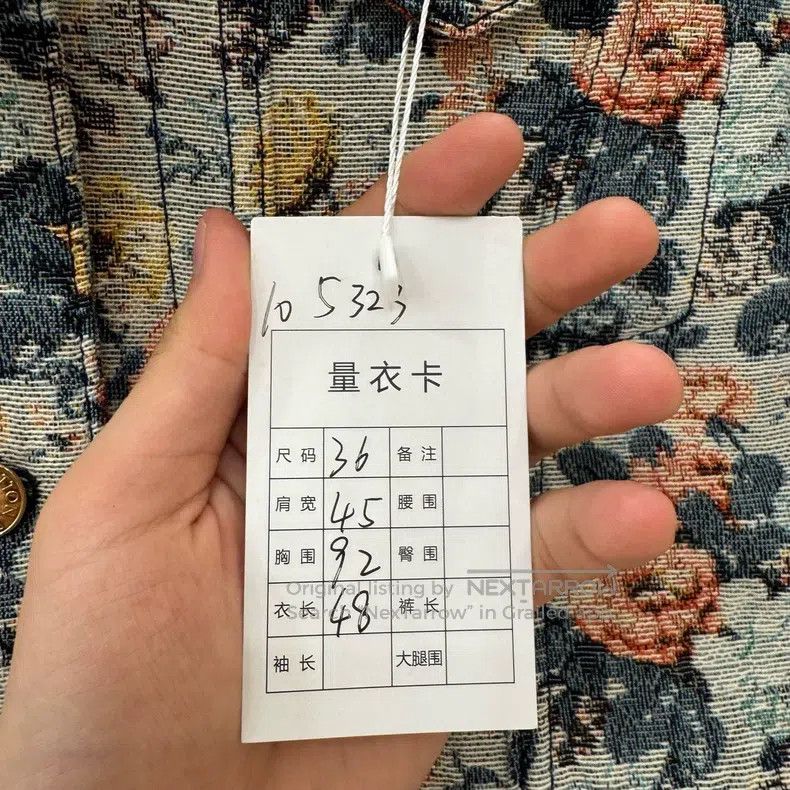 10 5323
量衣卡
尺码 36 备注
肩宽 45 腰围
胸围 92 臀围
Original listing by NEXTARROW
衣长 48 裤长
Search "NexTarrow" in Grailed
袖长 大腿围